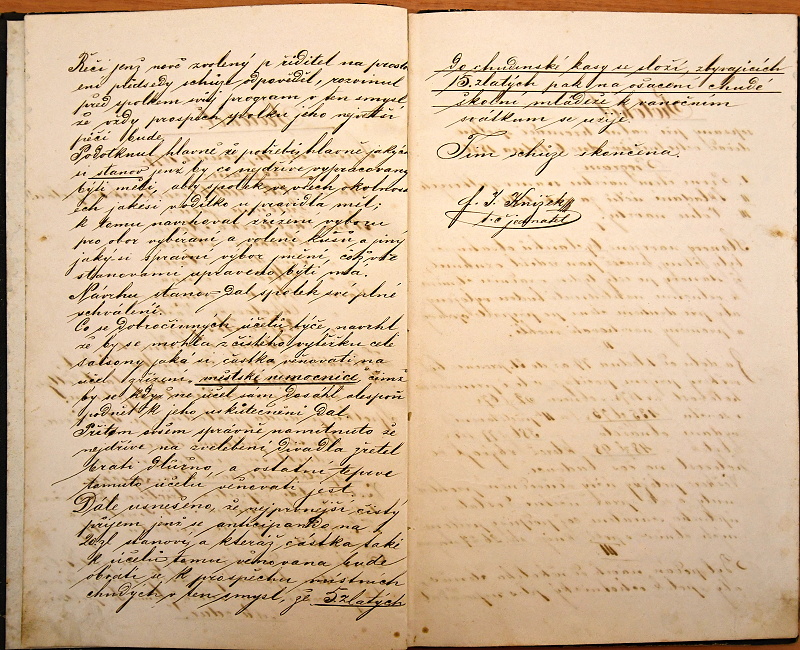 Řečí jenž nově zvolený p. ředitel na prosto
ení předsedy schůze odpověděl, rozvinul
před spolkem svůj program v ten smysl
že vždy prospěch spolku jeho největší
péčí bude.
Podotknul hlavně že potřebí hlavně jakých
si stanov jenž by co nejdříve vypracovany
býti měli, aby spolek ve všech okolnos
tech jakési vodítko a pravidla měl;
k tomu navrhoval zřízení výboru
pro obor vybírání a volení kusů a jiný
jaký si správní výbor jmění, což vše
stanovami upraveno býti má.
Návrhu stanov dal spolek své plné
schválení.
Co se dobročinných účelů týče, navrhl
že by se mohla z čistého výtěžku celé
saisony jaká si částka věnovati na
účel zřízení městské nemocnice čímž
by se když ne účel sám dosáhl alespoň
podnět k jeho uskutečnění dal
Přitom ovšem správně namítnuto že
nejdříve na zvelebení divadla zřetel
bráti dlužno, a ostatní teprve
tomuto účelu věnovati jest.
Dále usneseno, že nejprvnější čistý
příjem jenž se anticipando na
20 zl stanoví, a kteráž částka také
k účelu tomu věnována bude
obrátí se k prospěchu místních
chudých v ten smysl, že 5 zlatých
do chudinské kasy se složí, zbývajících
15 zlatých pak na ošacení chudé
školní mládeže k vánočním
svátkům se užije.
Tím schůze skončena.
f. J. Knížek
t. č. jednatel